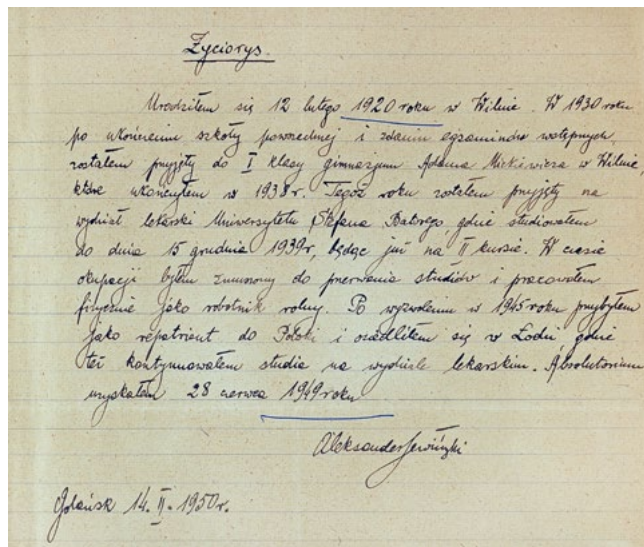 Życiorys.
Urodziłem się 12 lutego 1920 roku w Wilnie. W 1930 roku
po ukończeniu szkoły powszednej i zdaniu egzaminów wstępnych
zostałem przyjęty do I klasy gimnazjum Adama Mickiewicza w Wilnie,
które ukończyłem w 1938 r. Tegoż roku zostałem przyjęty na
wydział lekarski Uniwersytetu Stefana Batorego, gdzie studiowałem
do dnia 15 grudnia 1939 r, będąc już na II kursie. W czasie
okupacji byłem zmuszony do przerwania studiów i pracowałem
fizycznie jako robotnik rolny. Po wyzwoleniu w 1945 roku przybyłem
jako repatriant do Polski i osiedliłem się w Łodzi, gdzie
też kontynuowałem studia na wydziale lekarskim. Absolutorium
uzyskałem 28 czerwca 1949 roku
Aleksander
Gdańsk 14. II. 1950 r.